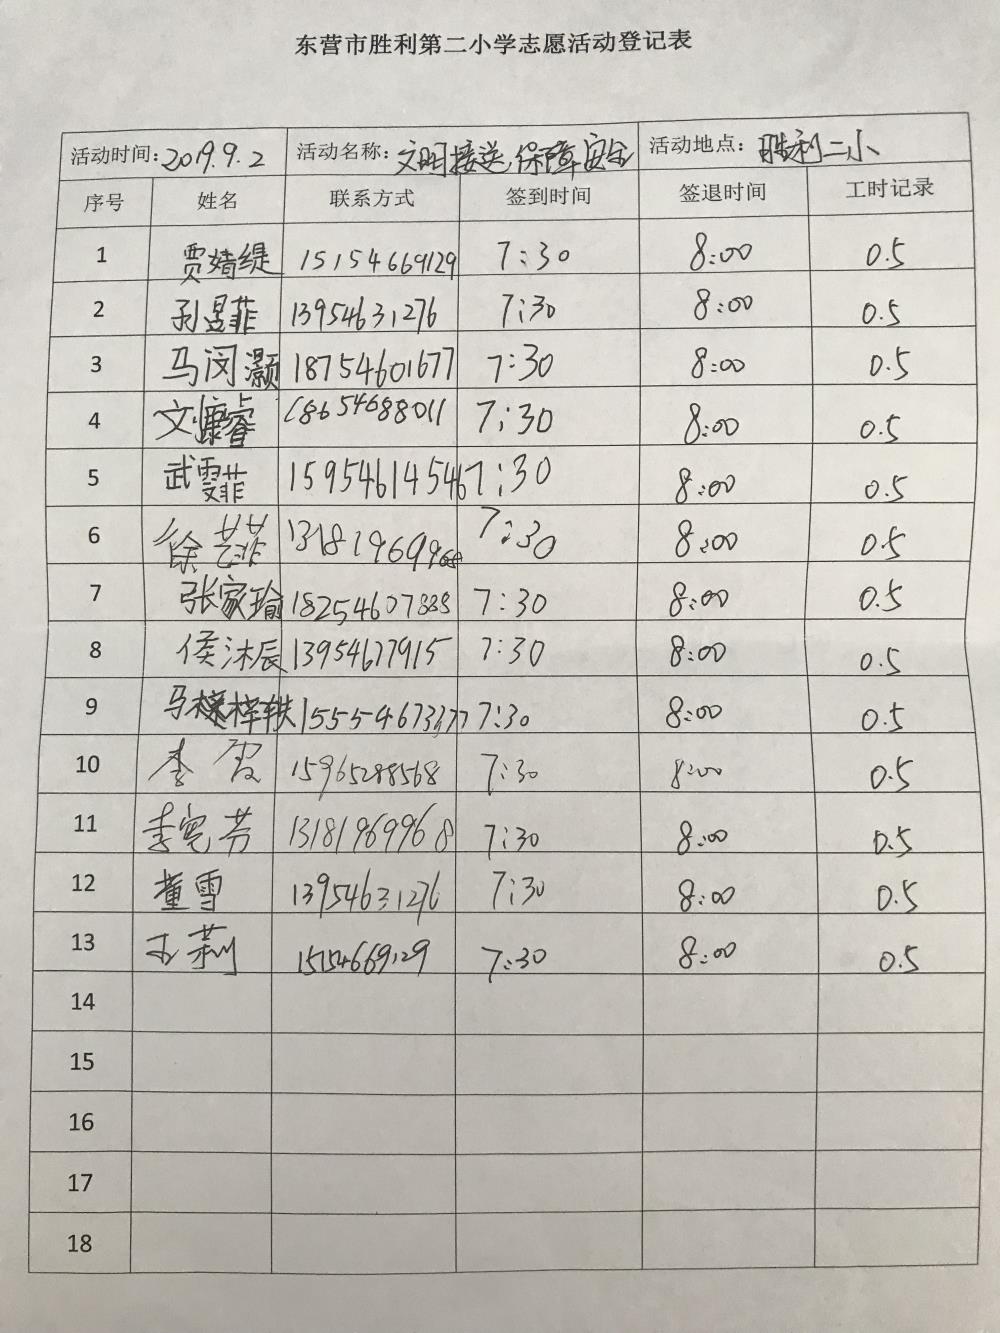 东营市胜利第二小学志愿活动登记表
活动时间: 2019.9.2 活动名称: 文明接送,保障安全 活动地点: 胜利二小
序号 姓名 联系方式 签到时间 签退时间 工时记录
1 贾婧缇 15154669129 7:30 8:00 0.5
2 孙昱菲 13954631276 7:30 8:00 0.5
3 马闵灏 18754601677 7:30 8:00 0.5
4 文慷睿 18654688011 7:30 8:00 0.5
5 武雯菲 15954614546 7:30 8:00 0.5
6 徐艺菲 13181969968 7:30 8:00 0.5
7 张家瑜 18254607888 7:30 8:00 0.5
8 侯沐辰 13954677915 7:30 8:00 0.5
9 马梓轶 15554673377 7:30 8:00 0.5
10 李智 15965288568 7:30 8:00 0.5
11 李宪芬 13181969968 7:30 8:00 0.5
12 董雪 13954631276 7:30 8:00 0.5
13 王莉 15154669129 7:30 8:00 0.5
14
15
16
17
18